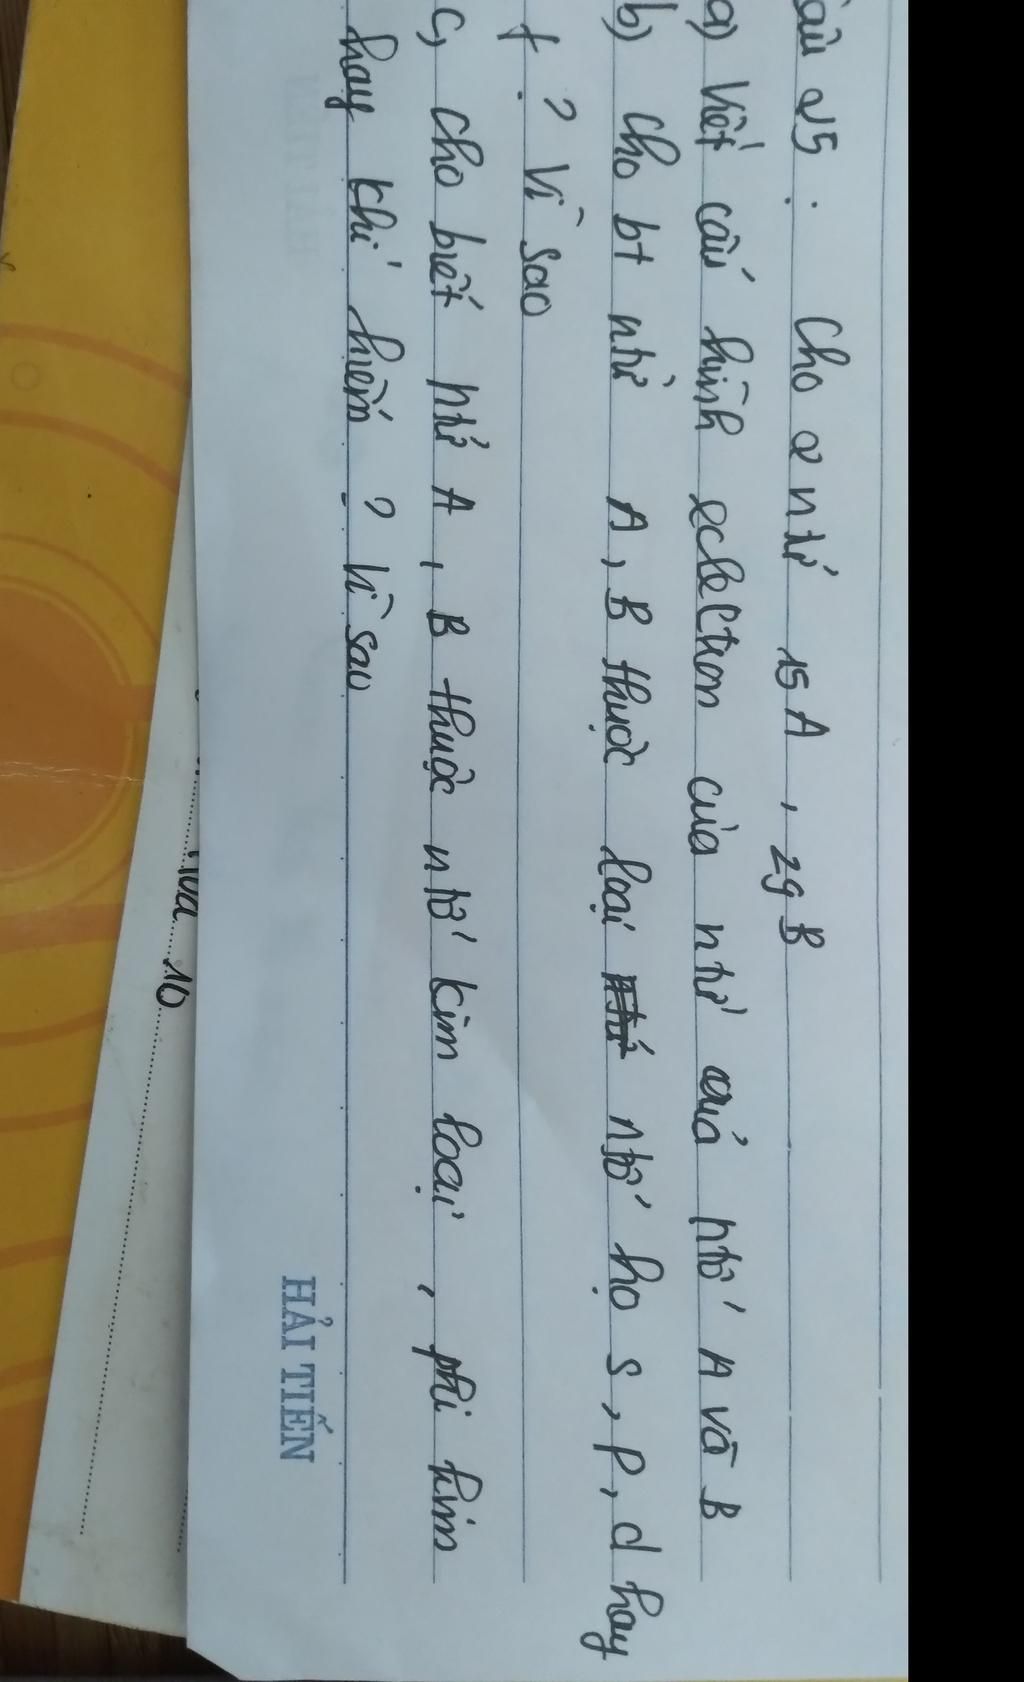 câu 25 : Cho 2 ntử 15A , 29B
a) Viết cấu hình eclection của ntử của ntố A và B
b) Cho bt ntử A, B thuộc loại ntố họ s, p, d hay
f ? Vì sao
c, Cho biết ntử A, B thuộc ntố kim loại, phi kim
hay khí hiếm ? Vì sao
HẢI TIẾN
10